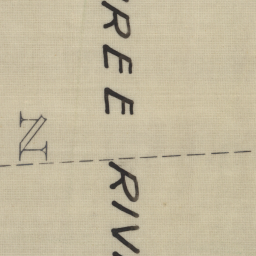 REE RIV
N